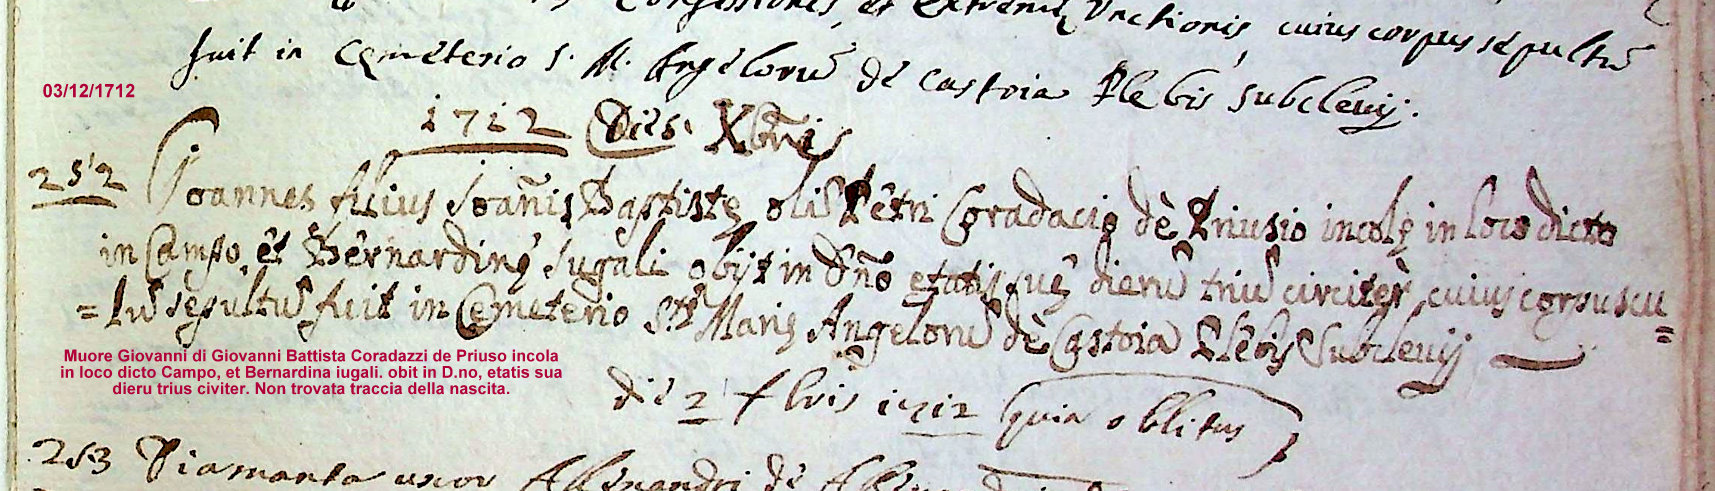 Confessionis, et Extremę Unctionis, cuius corpus sepultū
fuit in Cemeterio S. M. Angelorū de Castoia Plebis Subclevij.
03/12/1712
1712 Dies Xbris
252 Joannes filius Joānis Baptistę olim Petri Coradacis dè Priusio incolę in loco dicto
in Campo, et Bernardinę Jugaliū obijt in Dn̄o etatis suę dierū triū circiter, cuius corpuscu
=lū sepultū fuit in Cemeterio Stę Marię Angelorū dè Castoia Plebis Subclevij
Muore Giovanni di Giovanni Battista Coradazzi de Priuso incola
in loco dicto Campo, et Bernardina iugali. obit in D.no, etatis sua
dieru trius civiter. Non trovata traccia della nascita.
die 2 1712 quia oblitus
253 Diamanta uxor